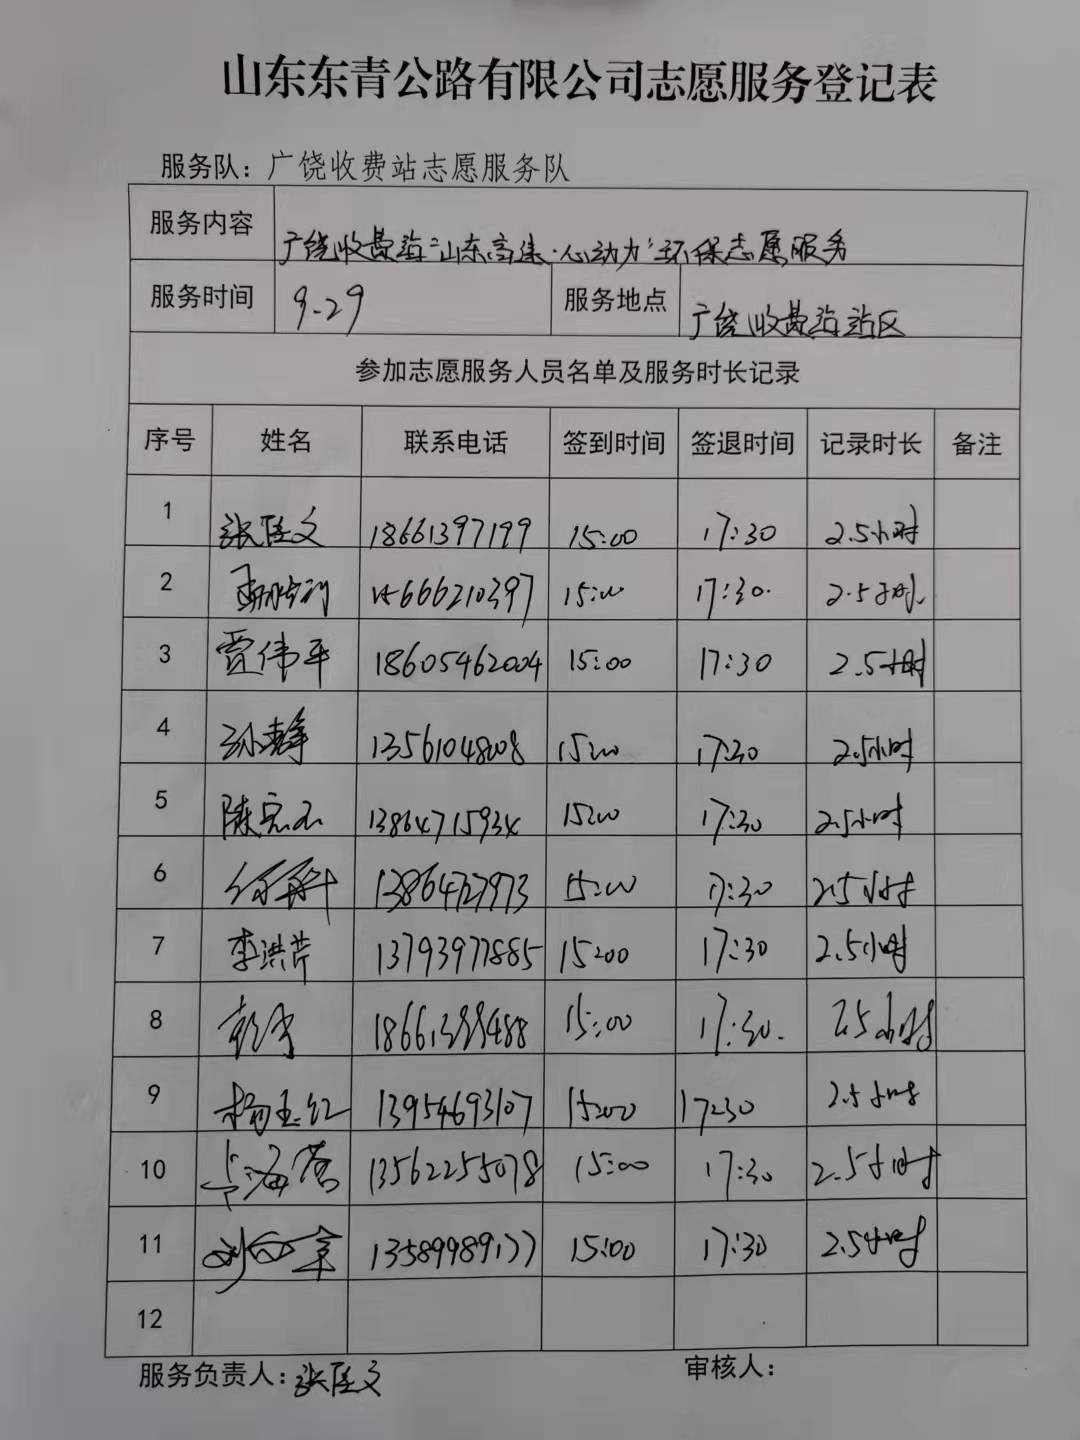 山东东青公路有限公司志愿服务登记表
服务队：广饶收费站志愿服务队
服务内容 广饶收费站“山东高速·心动力”环保志愿服务
服务时间 9.29 服务地点 广饶收费站站区
参加志愿服务人员名单及服务时长记录
序号 姓名 联系电话 签到时间 签退时间 记录时长 备注
1 张匡文 18661397199 15:00 17:30 2.5小时
2 15666210397 15:00 17:30. 2.5小时
3 贾伟平 18605462004 15:00 17:30 2.5小时
4 孙静 13561048008 15:00 17:30 2.5小时
5 陈 13864715934 15:00 17:30 2.5小时
6 13864727973 15:00 17:30 2.5小时
7 李洪芹 13793977885 15:00 17:30 2.5小时
8 18661399488 15:00 17:30. 2.5小时
9 杨玉红 13954693107 15:00 17:30 2.5小时
10 海 13562255078 15:00 17:30 2.5小时
11 刘 13589989177 15:00 17:30 2.5小时
12
服务负责人：张匡文 审核人：